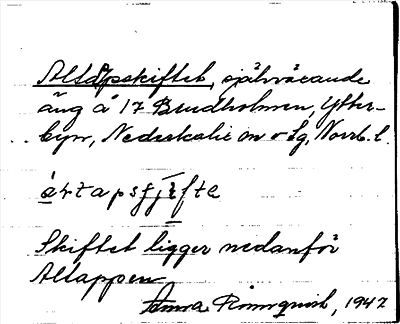 Altappskiftet, självväxande
äng å 17 Brudholmen, Ytter-
byn, Nederkalix sn o lg, Norrb. l.
Skiftet ligger nedanför
Altappen
Anna Rönnqvist, 1947